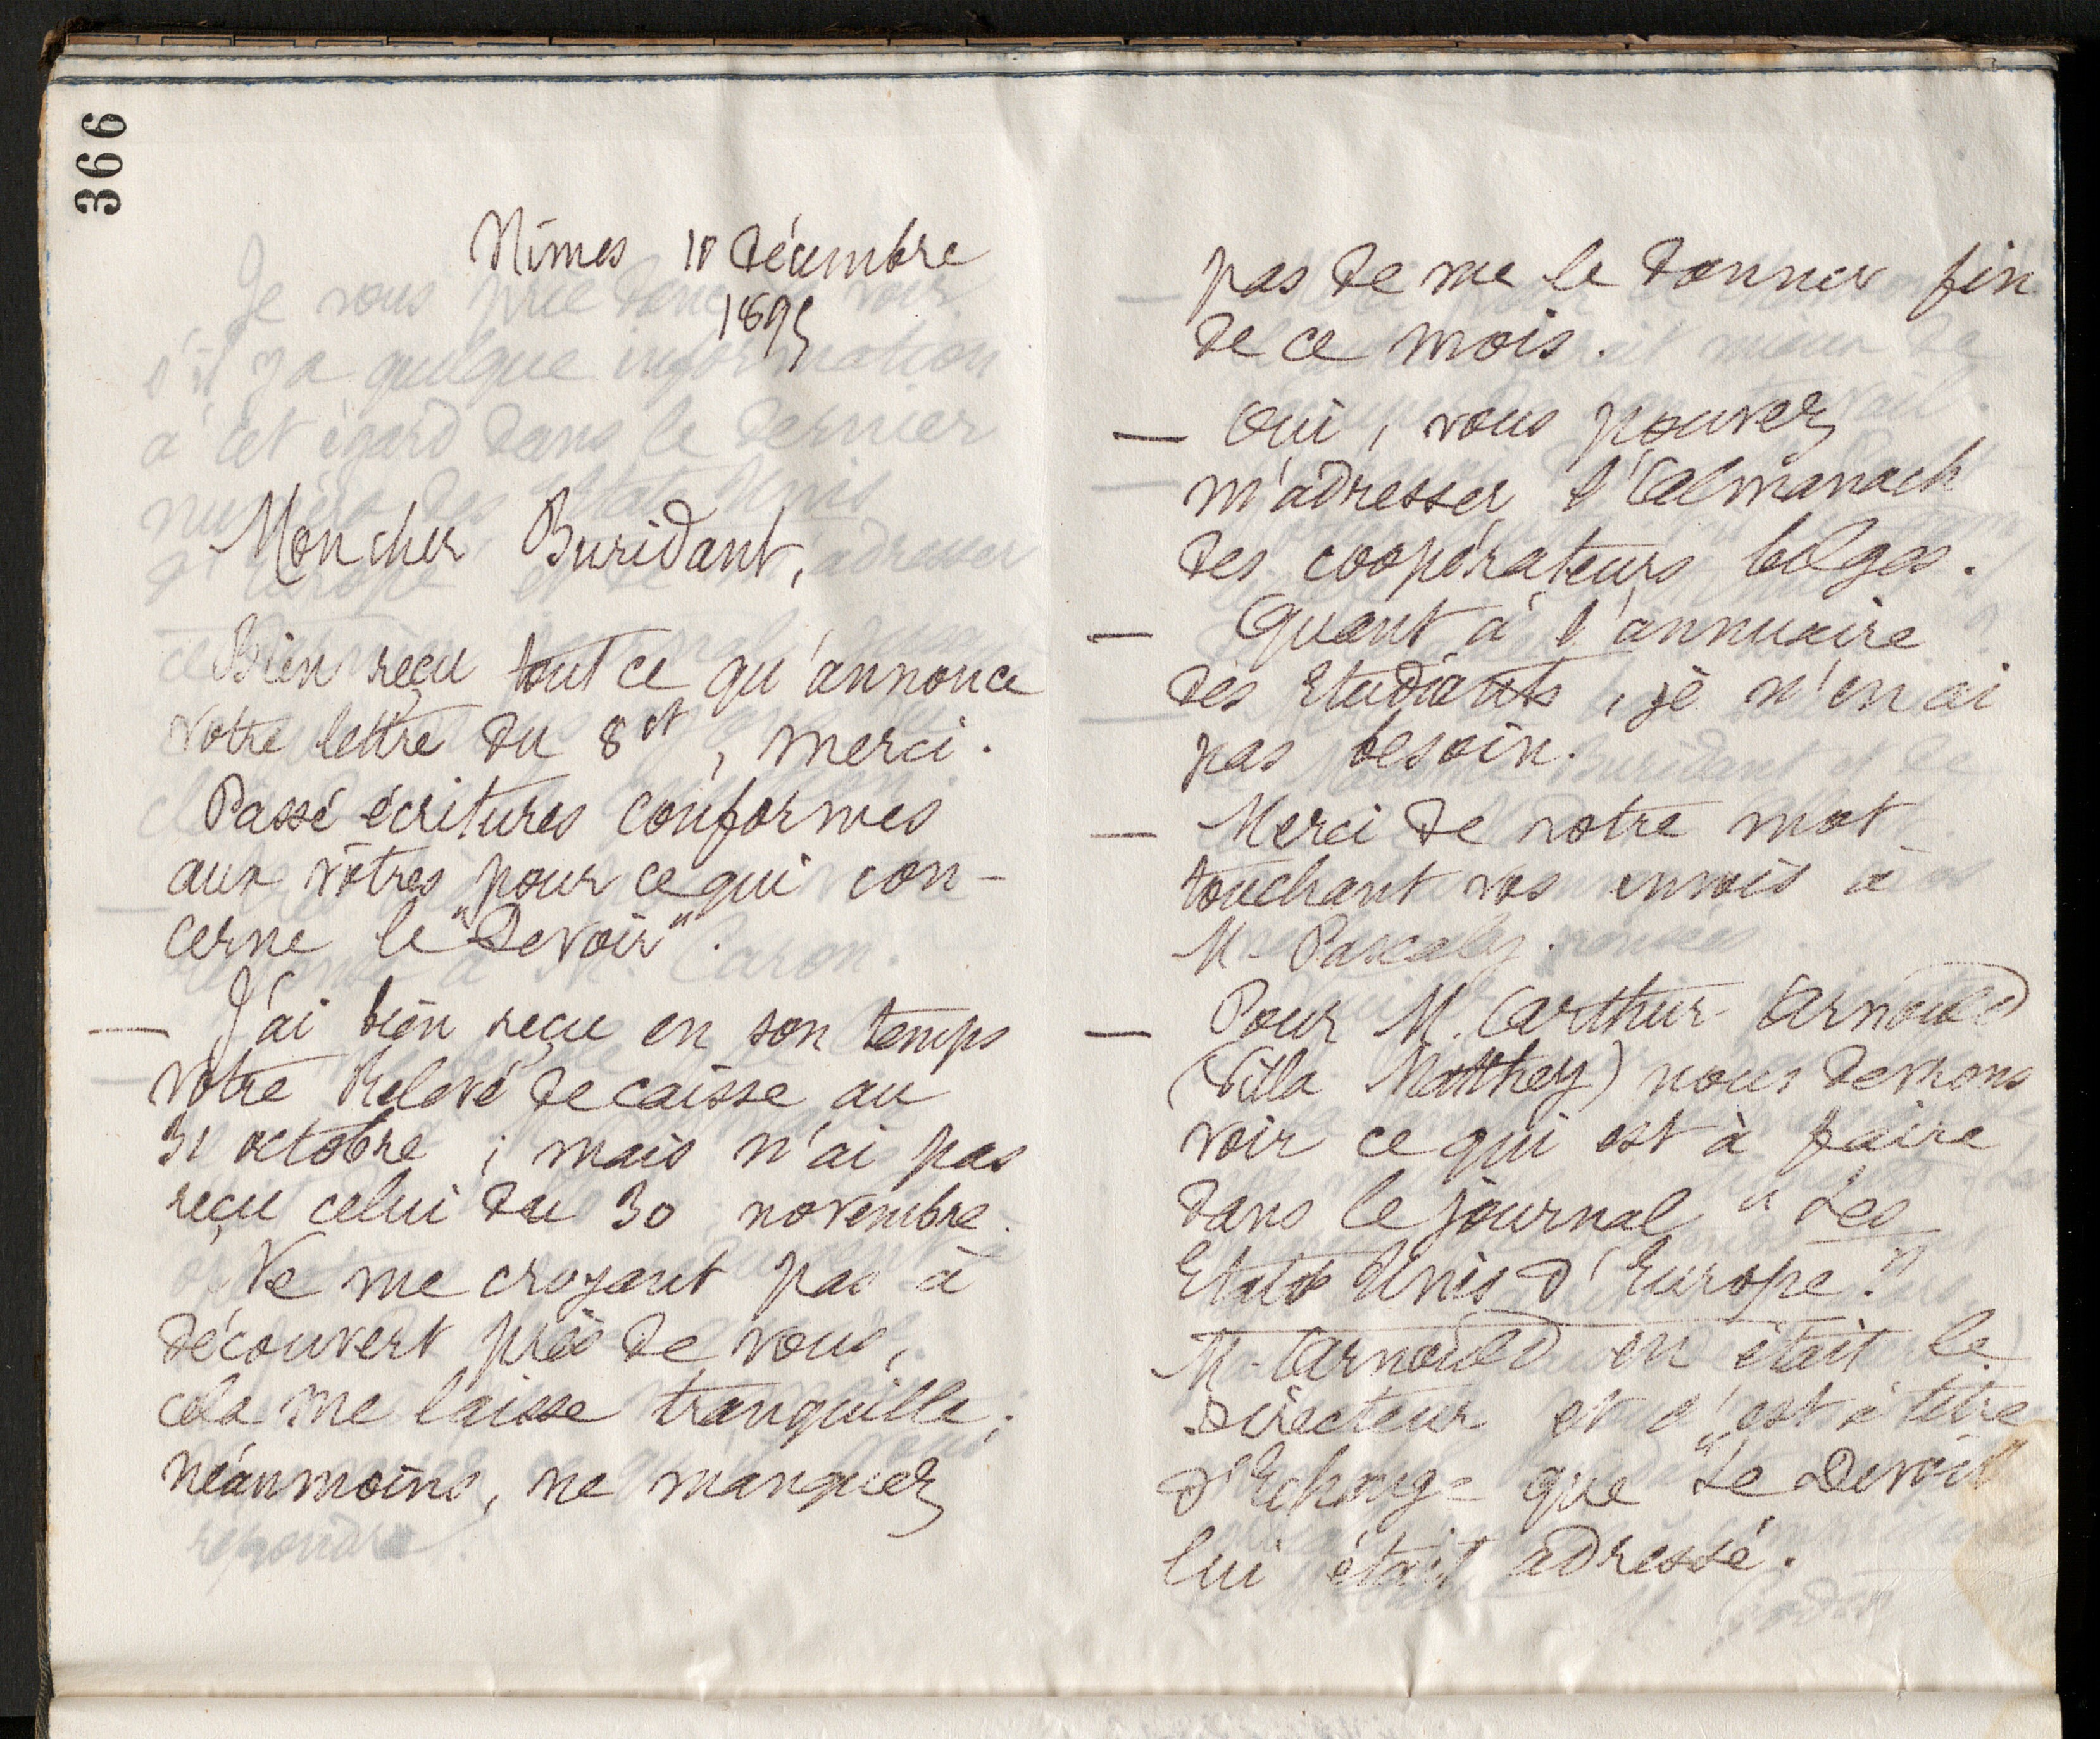 366
Nîmes 10 décembre
1895
Mon cher Buridant,
Bien reçu tout ce qu'annonce
votre lettre du 8 ct, merci.
Passé écritures conformes
aux vôtres pour ce qui con-
cerne le "Devoir".
— J'ai bien reçu en son temps
votre Relevé de caisse au
31 octobre ; mais n'ai pas
reçu celui du 30 novembre.
Ne me croyant pas à
découvert près de vous,
cela me laisse tranquille ;
néanmoins, ne manquez
pas de me le donner fin
de ce mois.
— Oui, vous pouvez
m'adresser l'Almanach
des coopérateurs belges.
— Quant à l'annuaire
des Etudiants, je n'en ai
pas besoin.
— Merci de votre mot
touchant vos envois à
M. Pascaly.
— Pour M. Arthur Arnould
(Villa Matthey) nous devrons
voir ce qui est à faire
dans le journal "Les
Etats Unis d'Europe."
M. Arnould en était le
Directeur et c'est à titre
d'Echange que "Le Devoir"
lui était adressé.